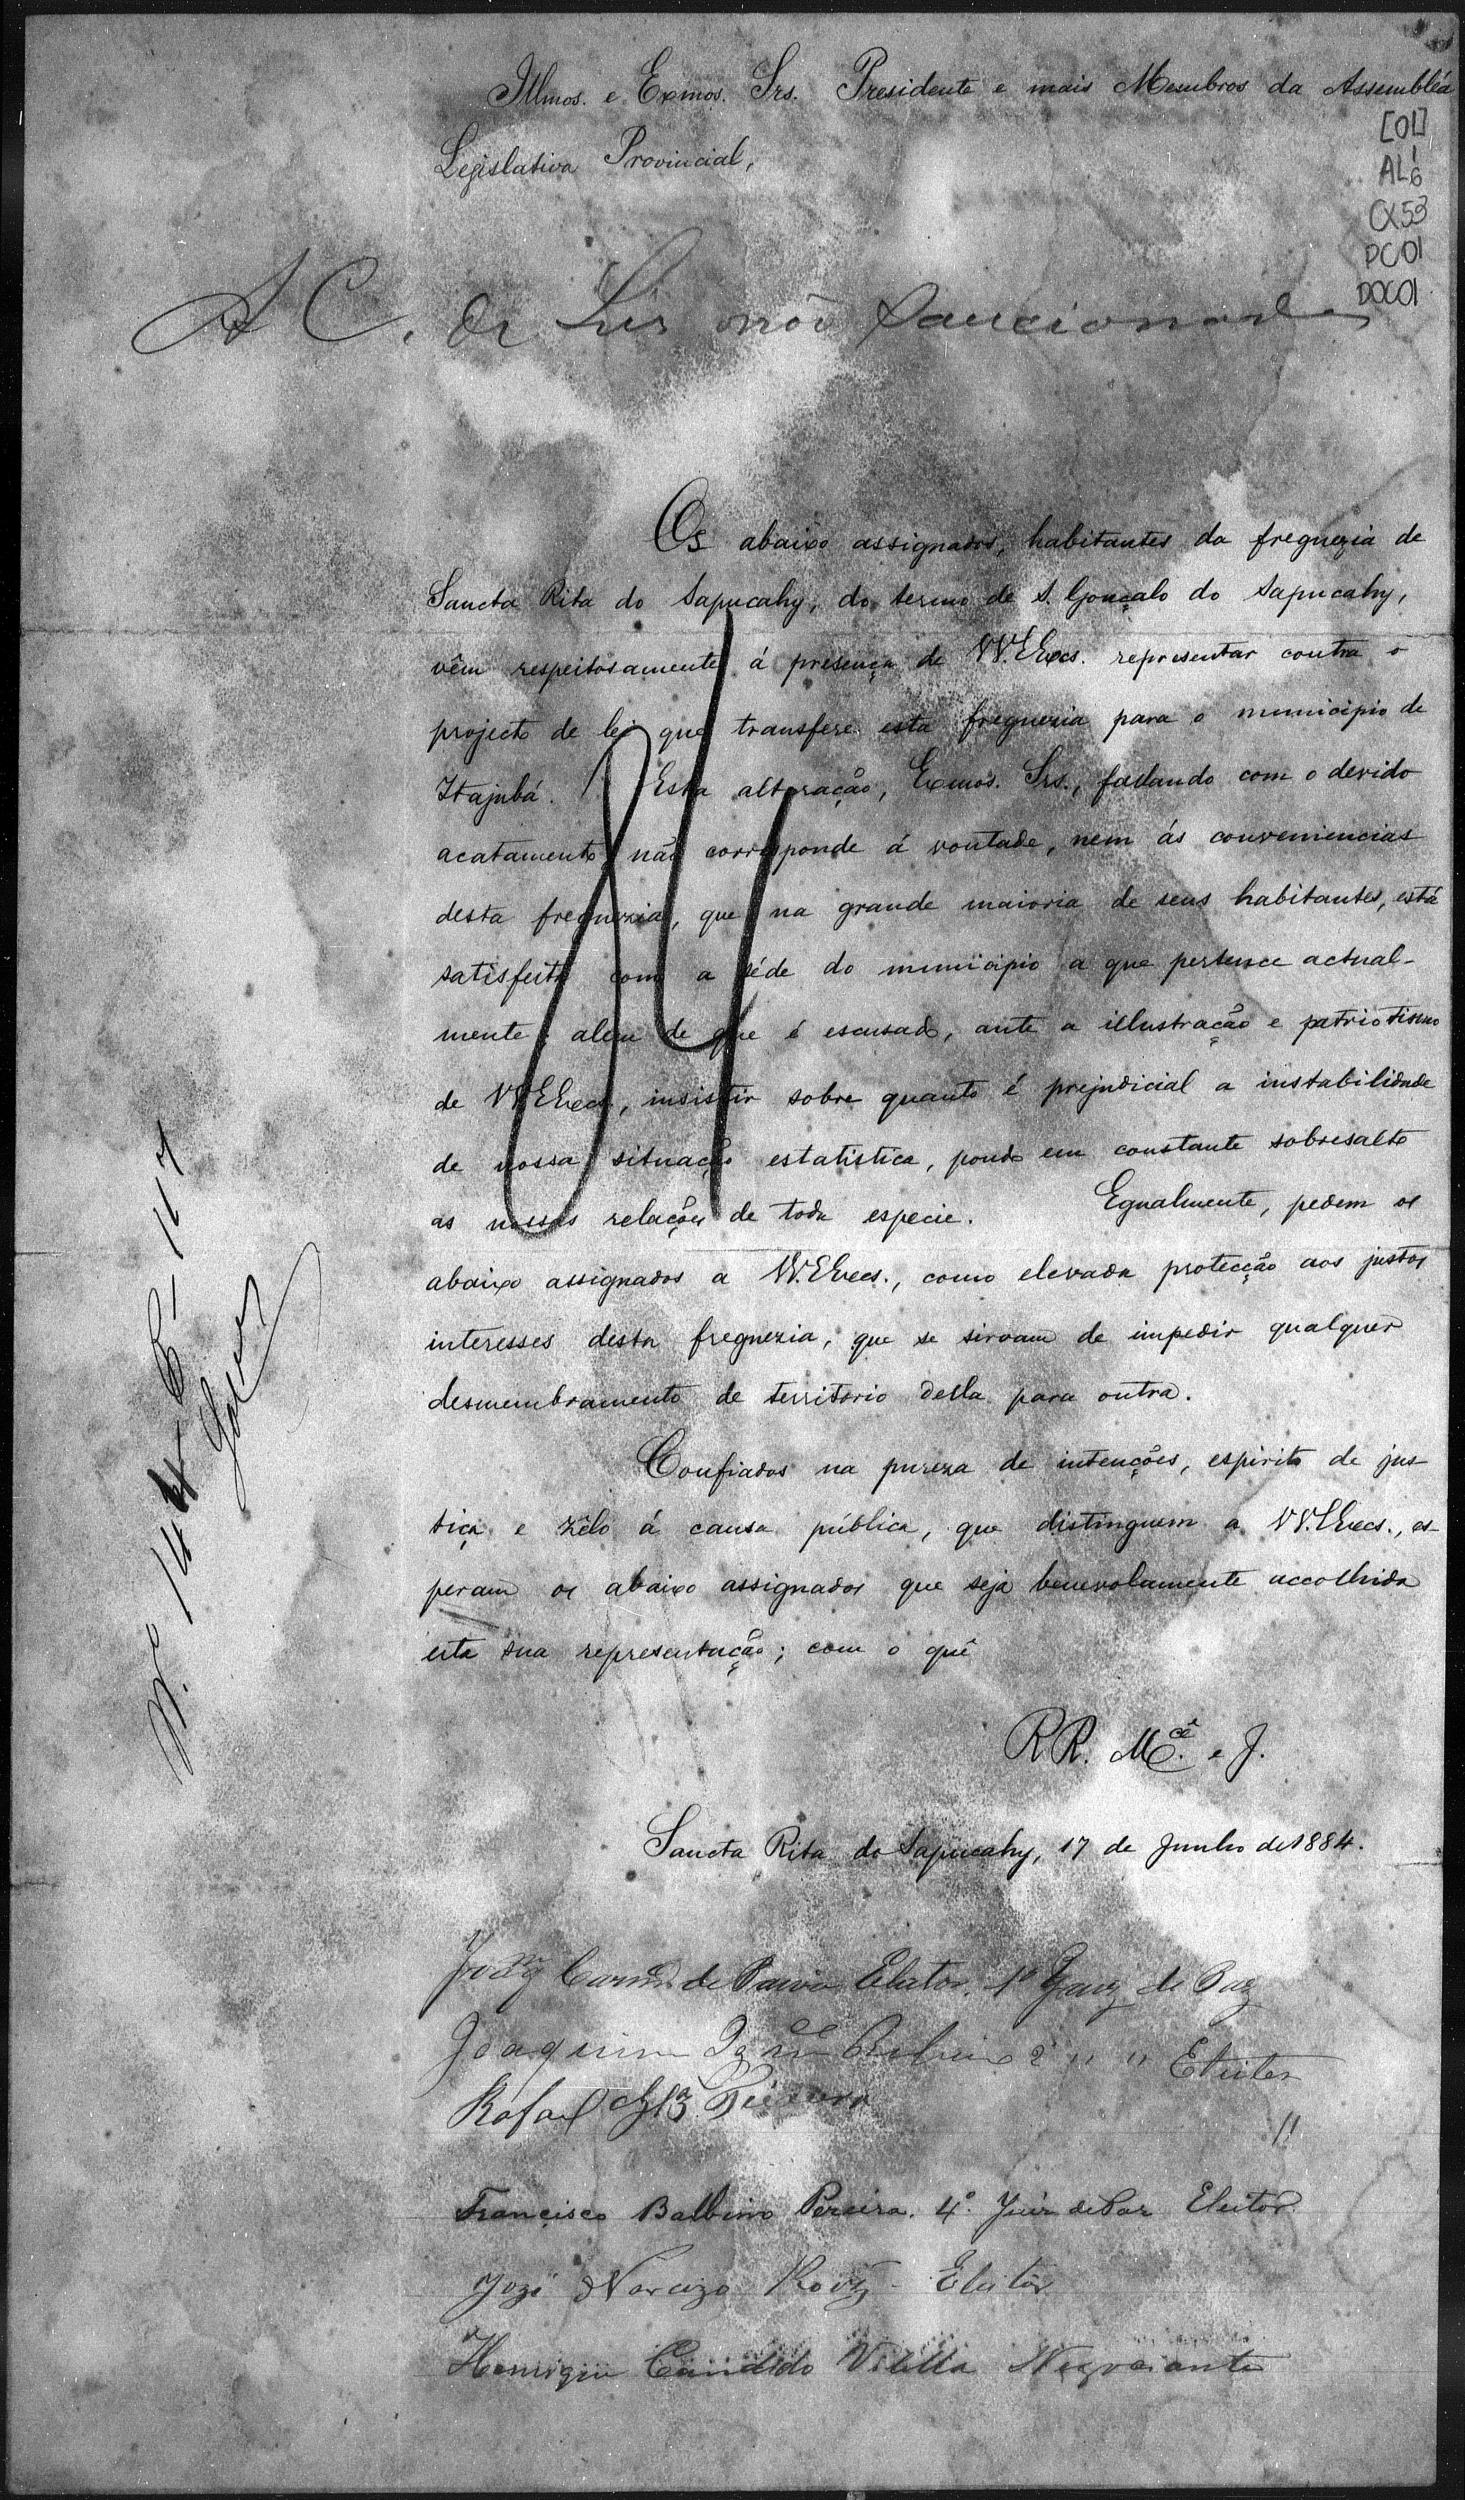 Illmos. e Exmos. Srs. Presidente e mais Membros da Assembléa
Legislativa Provincial,
[01]
AL 1/6
CX53
PC01
DOC01
A C. de Leis não Sanccionadas
Os abaixo assignados, habitantes da freguezia de
Sancta Rita do Sapucahy, do termo de S. Gonçalo do Sapucahy,
vêm respeitosamente á presença de VV.EExcs. representar contra o
projecto de lei que transfere esta freguezia para o municipio de
Itajubá. Esta alteração, Exmos. Srs., fallando com o devido
acatamento, não corresponde á vontade, nem ás conveniencias
desta freguezia, que na grande maioria de seus habitantes, está
satisfeita com a séde do municipio a que pertence actual-
mente; alem de que é escusado, ante a illustração e patriotismo
de VV.EExcs., insistir sobre quanto é prejudicial a instabilidade
de nossa situação estatistica, pondo em constante sobresalto
as nossas relações de toda especie. Egualmente, pedem os
abaixo assignados a VV.EExcs., como elevada protecção aos justos
interesses desta freguezia, que se sirvam de impedir qualquer
desmembramento de territorio della para outra.
Confiados na pureza de intenções, espirito de jus-
tiça e zêlo á causa pública, que distinguem a VV.EExcs., es-
peram os abaixo assignados que seja benevolamente accolhida
esta sua representação; com o quê
RR. M.cê e J.
Sancta Rita do Sapucahy, 17 de Junho de 1884.
de Paiva Eleitor. 1º Juiz de Paz
Joaquim Ribeiro 2º " " Eleitor
Rafael "
Francisco Balbino Pereira. 4º. Juiz de Paz Eleitor
Jozé Narcizo Roiz Eleitor
Henrique Candido Vilella Negociante
84
Nº 144